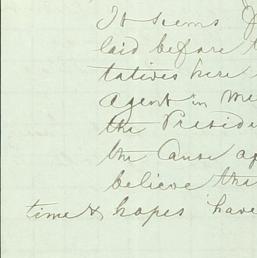 It seems
laid before
tatives here
agent in Me
the Preside
the Cause a
believe the
time & hopes have